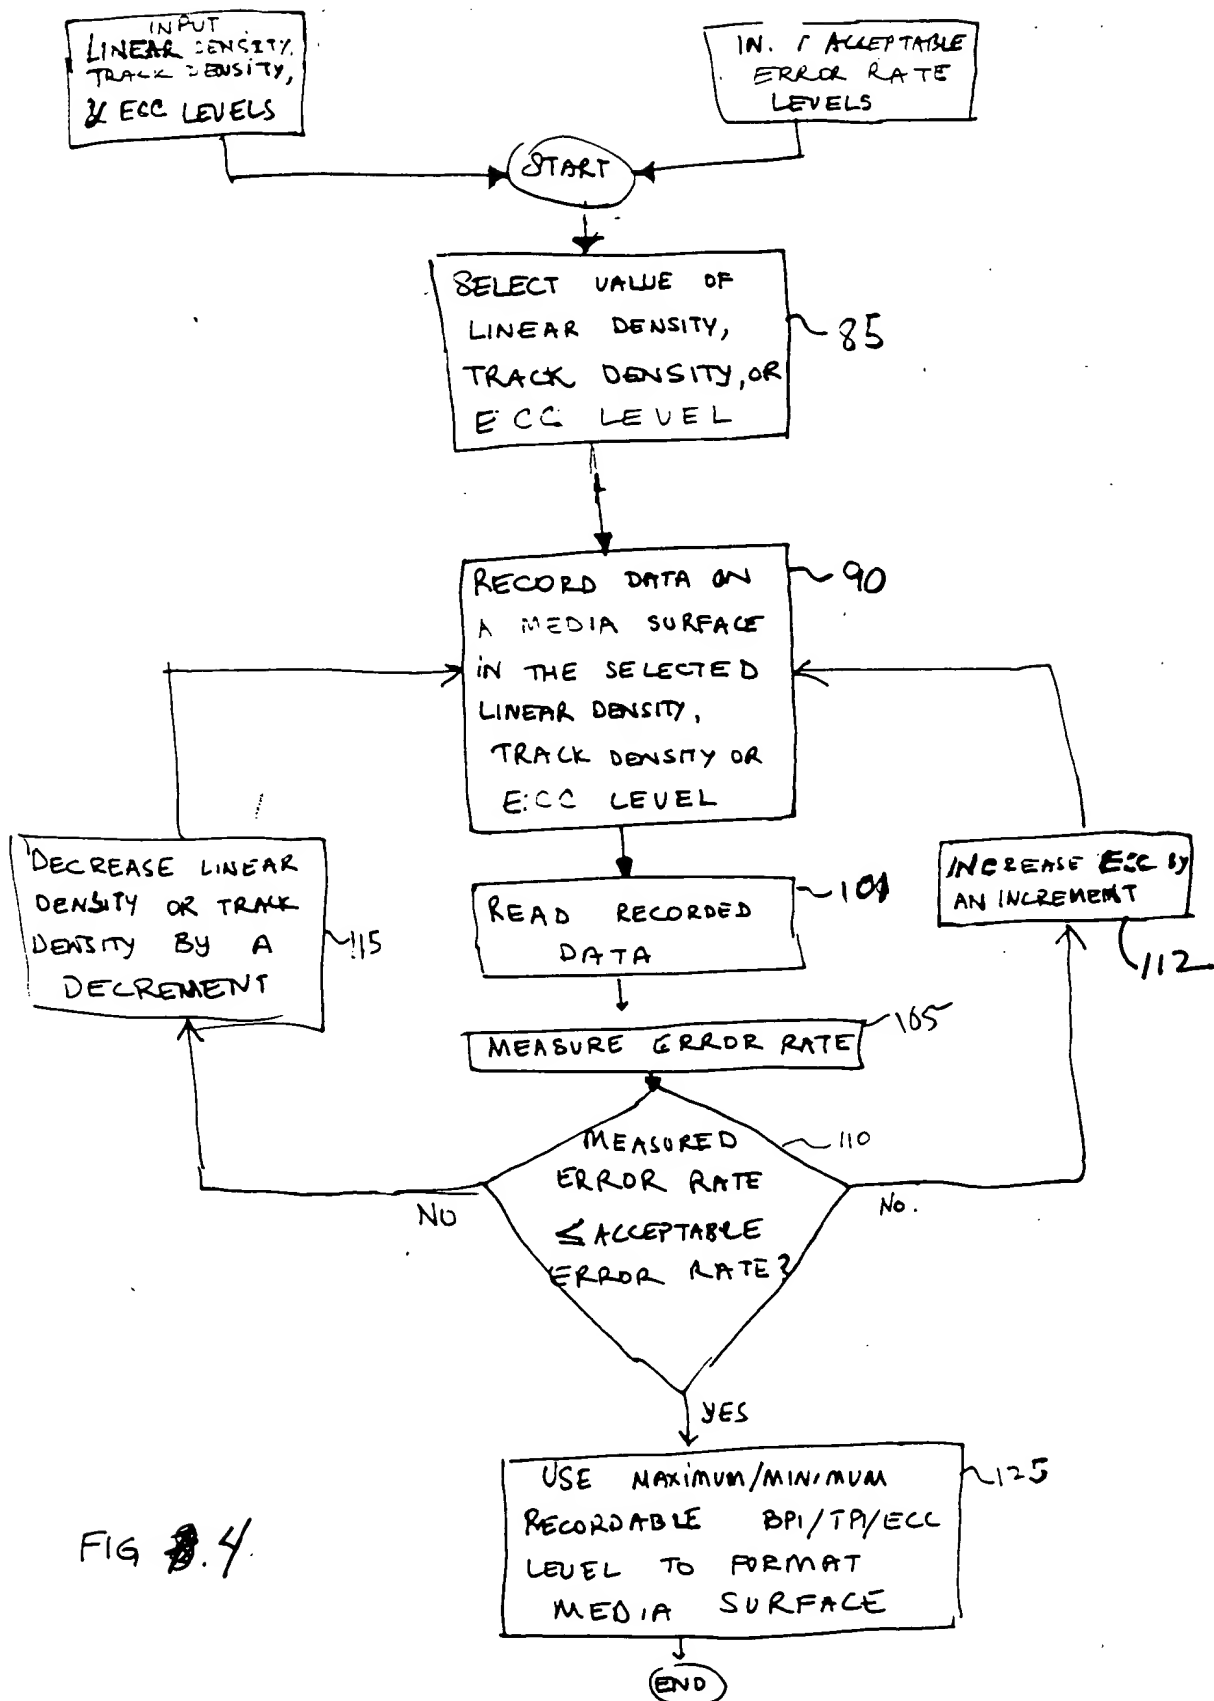 INPUT
LINEAR DENSITY,
TRACK DENSITY,
& ECC LEVELS
ACCEPTABLE
ERROR RATE
LEVELS
START
SELECT VALUE OF
LINEAR DENSITY,
TRACK DENSITY, OR
ECC LEVEL
85
RECORD DATA ON
A MEDIA SURFACE
IN THE SELECTED
LINEAR DENSITY,
TRACK DENSITY OR
ECC LEVEL
90
DECREASE LINEAR
DENSITY OR TRACK
DENSITY BY A
DECREMENT
115
INCREASE ECC BY
AN INCREMENT
112
READ RECORDED
DATA
101
MEASURE ERROR RATE
105
MEASURED
ERROR RATE
≤ ACCEPTABLE
ERROR RATE?
110
NO
NO.
YES
USE MAXIMUM/MINIMUM
RECORDABLE BPI/TPI/ECC
LEVEL TO FORMAT
MEDIA SURFACE
125
END
FIG .4.